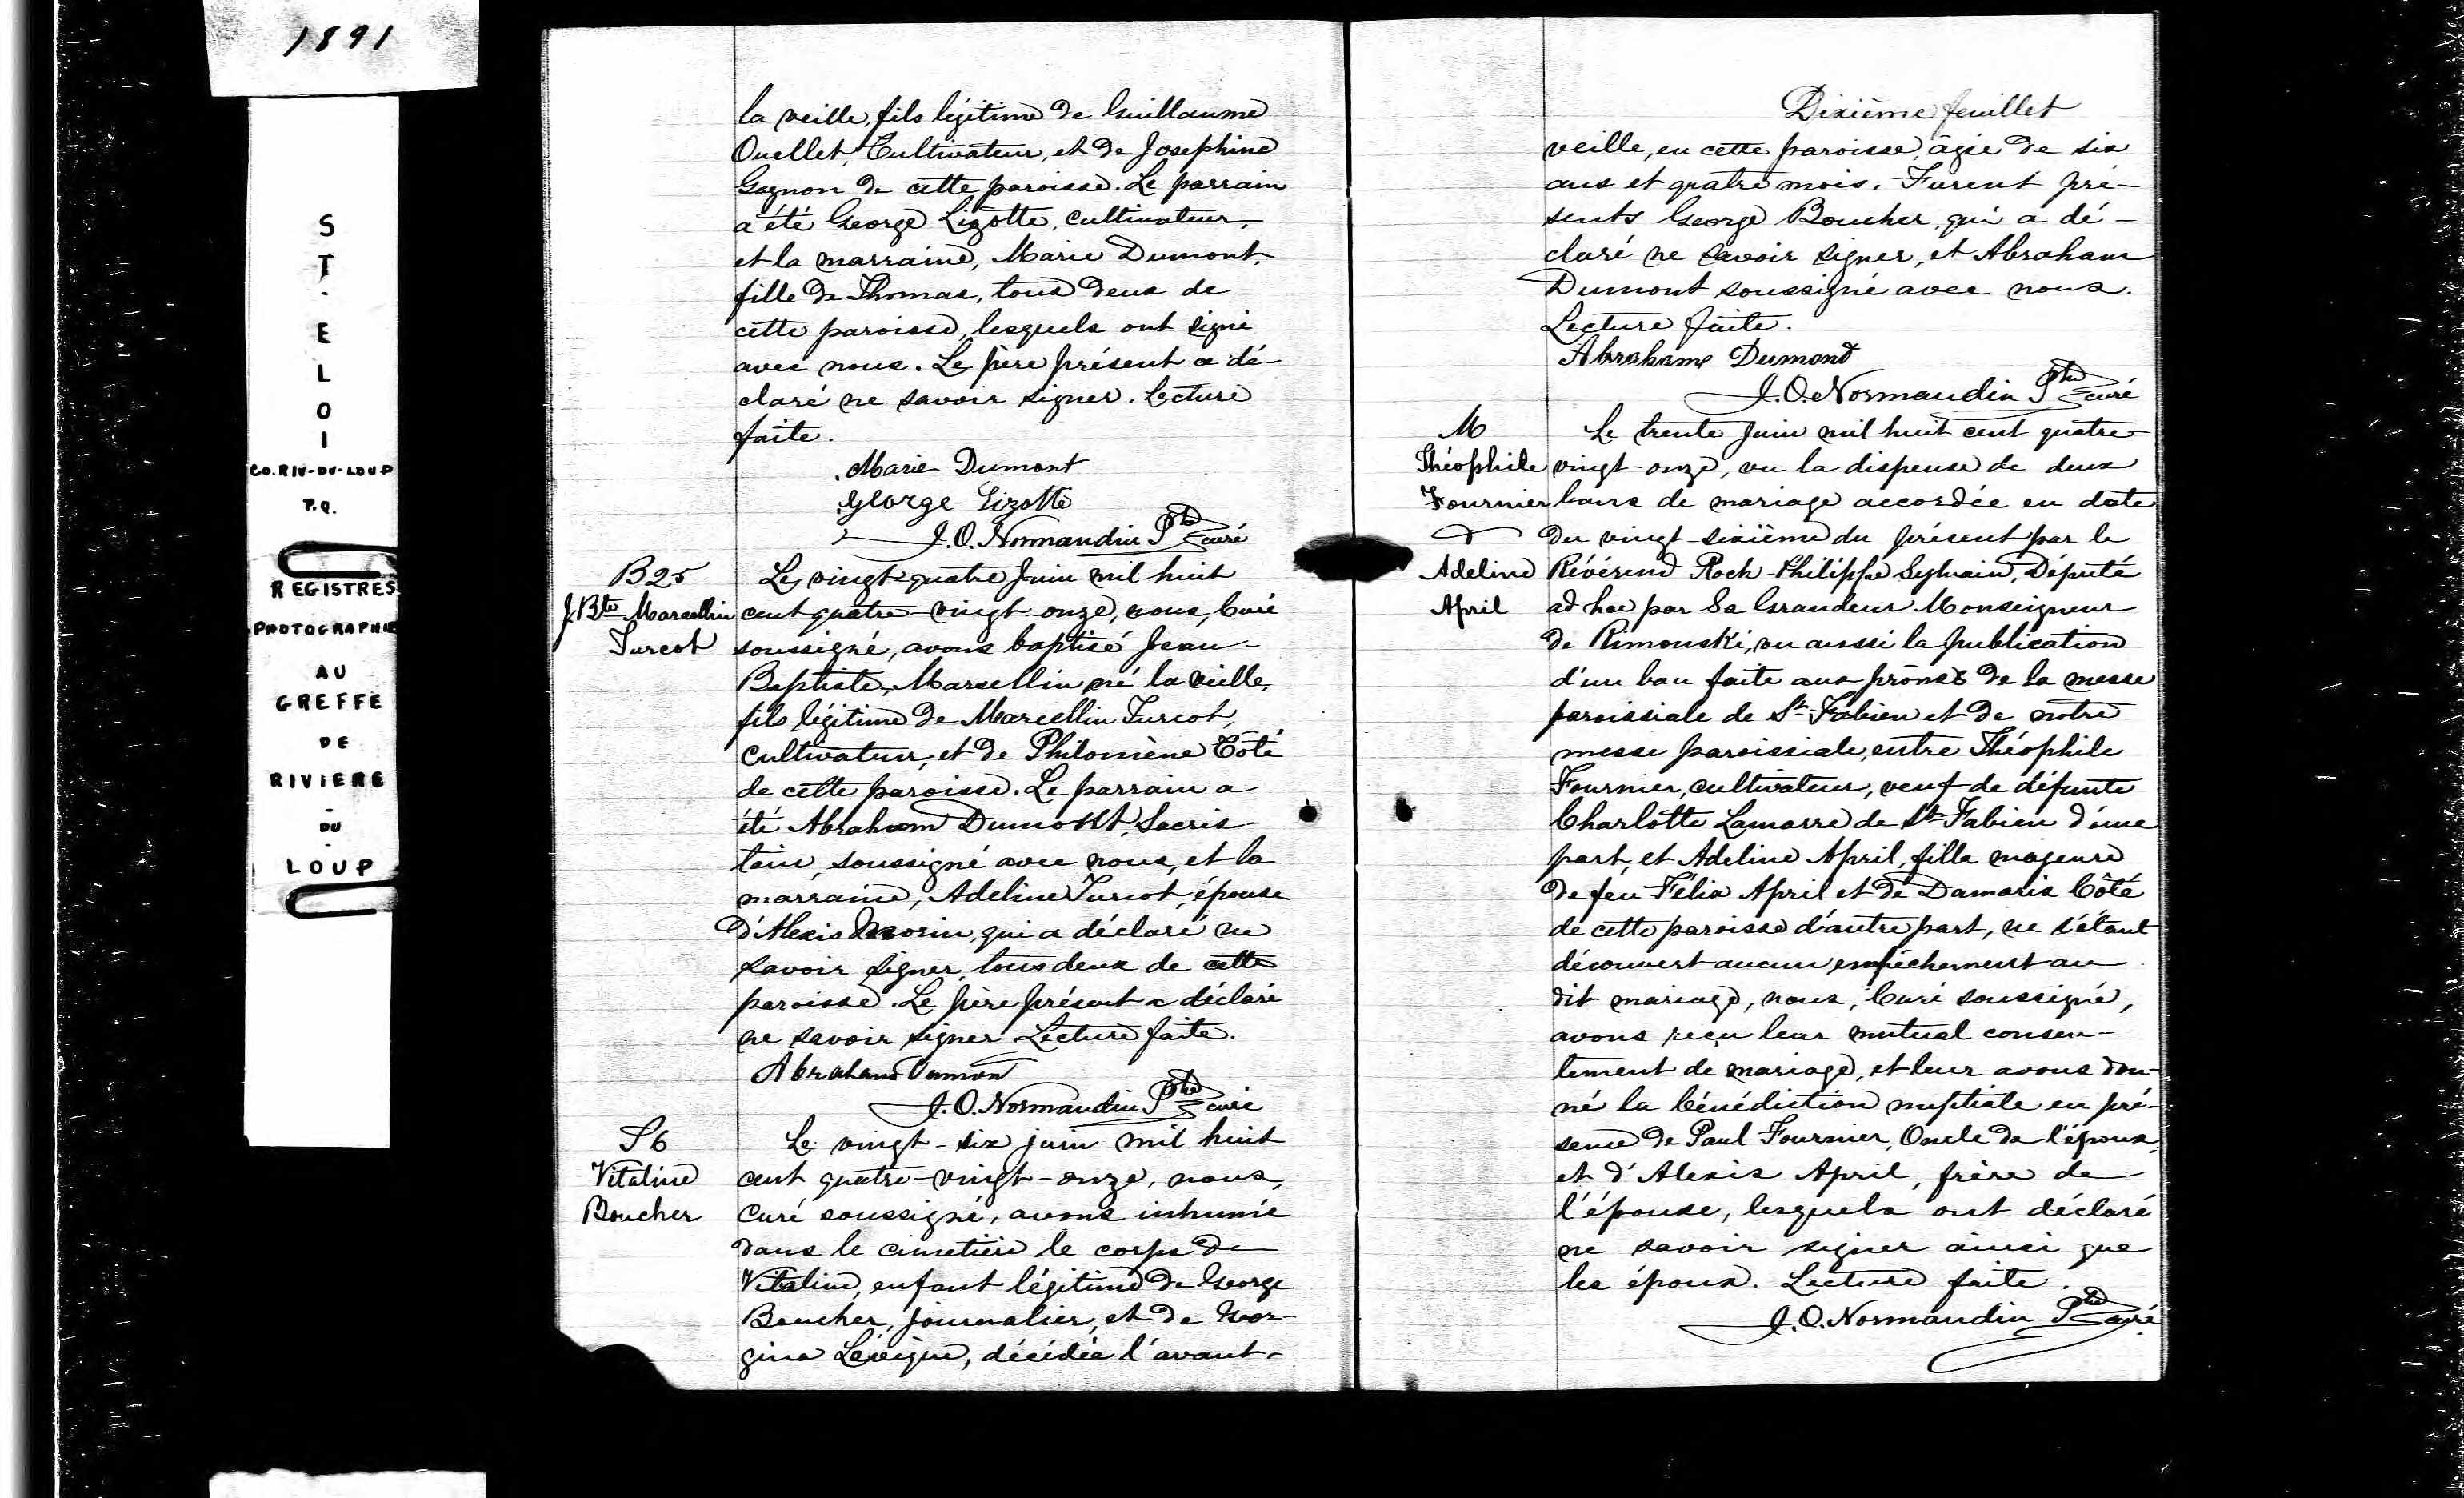 1891
ST. ELOI
CO. RIV-DU-LOUP
P.Q.
REGISTRES
PHOTOGRAPHIE
AU
GREFFE
DE
RIVIERE
-
DU
-
LOUP
la veille, fils légitime de Guillaume
Ouellet, Cultivateur, et de Josephine
Gagnon de cette paroisse. Le parrain
a été George Lizotte, cultivateur,
et la marraine, Marie Dumont,
fille de Thomas, tous deux de
cette paroisse, lesquels ont signé
avec nous. Le père présent a dé-
claré ne savoir signer. Lecture
faite.
Marie Dumont
George Lizotte
J. O. Normandin Ptre curé
B 25
J. Bte Marcellin
Turcot
Le vingt-quatre Juin mil huit
cent quatre-vingt-onze, nous, Curé
soussigné, avons baptisé Jean-
Baptiste, Marcellin né la veille,
fils légitime de Marcellin Turcot,
cultivateur, et de Philomène Côté
de cette paroisse. Le parrain a
été Abraham Dumont, Sacris-
tain, soussigné avec nous, et la
marraine, Adeline Turcot, épouse
d'Alexis Morin, qui a déclaré ne
savoir signer, tous deux de cette
paroisse. Le père présent a déclaré
ne savoir signer. Lecture faite.
Abraham Dumon
J. O. Normandin Ptre curé
S 6
Vitaline
Boucher
Le vingt-six juin mil huit
cent quatre-vingt-onze, nous,
Curé soussigné, avons inhumé
dans le cimetière le corps de
Vitaline, enfant légitime de George
Boucher, journalier, et de Geor-
gina Lévêque, décédée l'avant-
Dixième feuillet
veille, en cette paroisse, âgée de six
ans et quatre mois. Furent pré-
sents George Boucher, qui a dé-
claré ne savoir signer, et Abraham
Dumont soussigné avec nous.
Lecture faite.
Abraham Dumont
J. O. Normandin Ptre curé
M
Théophile
Fournier
&
Adeline
April
Le trente Juin mil huit cent quatre-
vingt-onze, vu la dispense de deux
bans de mariage accordée en date
du vingt-sixième du présent par le
Révérend Roch-Philippe Sylvain, Député
ad hoc par Sa Grandeur Monseigneur
de Rimouski, vu aussi la publication
d'un ban faite aux prônes de la messe
paroissiale de St-Fabien et de notre
messe paroissiale, entre Théophile
Fournier, cultivateur, veuf de défunte
Charlotte Lamarre de St-Fabien d'une
part, et Adeline April, fille majeure
de feu Félix April et de Damaris Côté
de cette paroisse d'autre part, ne s'étant
découvert aucun empêchement au
dit mariage, nous, Curé soussigné,
avons reçu leur mutuel consen-
tement de mariage, et leur avons don-
né la bénédiction nuptiale en pré-
sence de Paul Fournier, Oncle de l'époux,
et d'Alexis April, frère de
l'épouse, lesquels ont déclaré
ne savoir signer ainsi que
les époux. Lecture faite.
J. O. Normandin Ptre curé